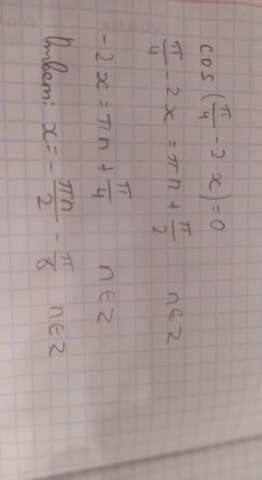 cos(π/4 - 2x)=0
π/4 - 2x = πn + π/2 n∈z
-2x = πn + π/4 n∈z
Ответ: x = - πn/2 - π/8 n∈z